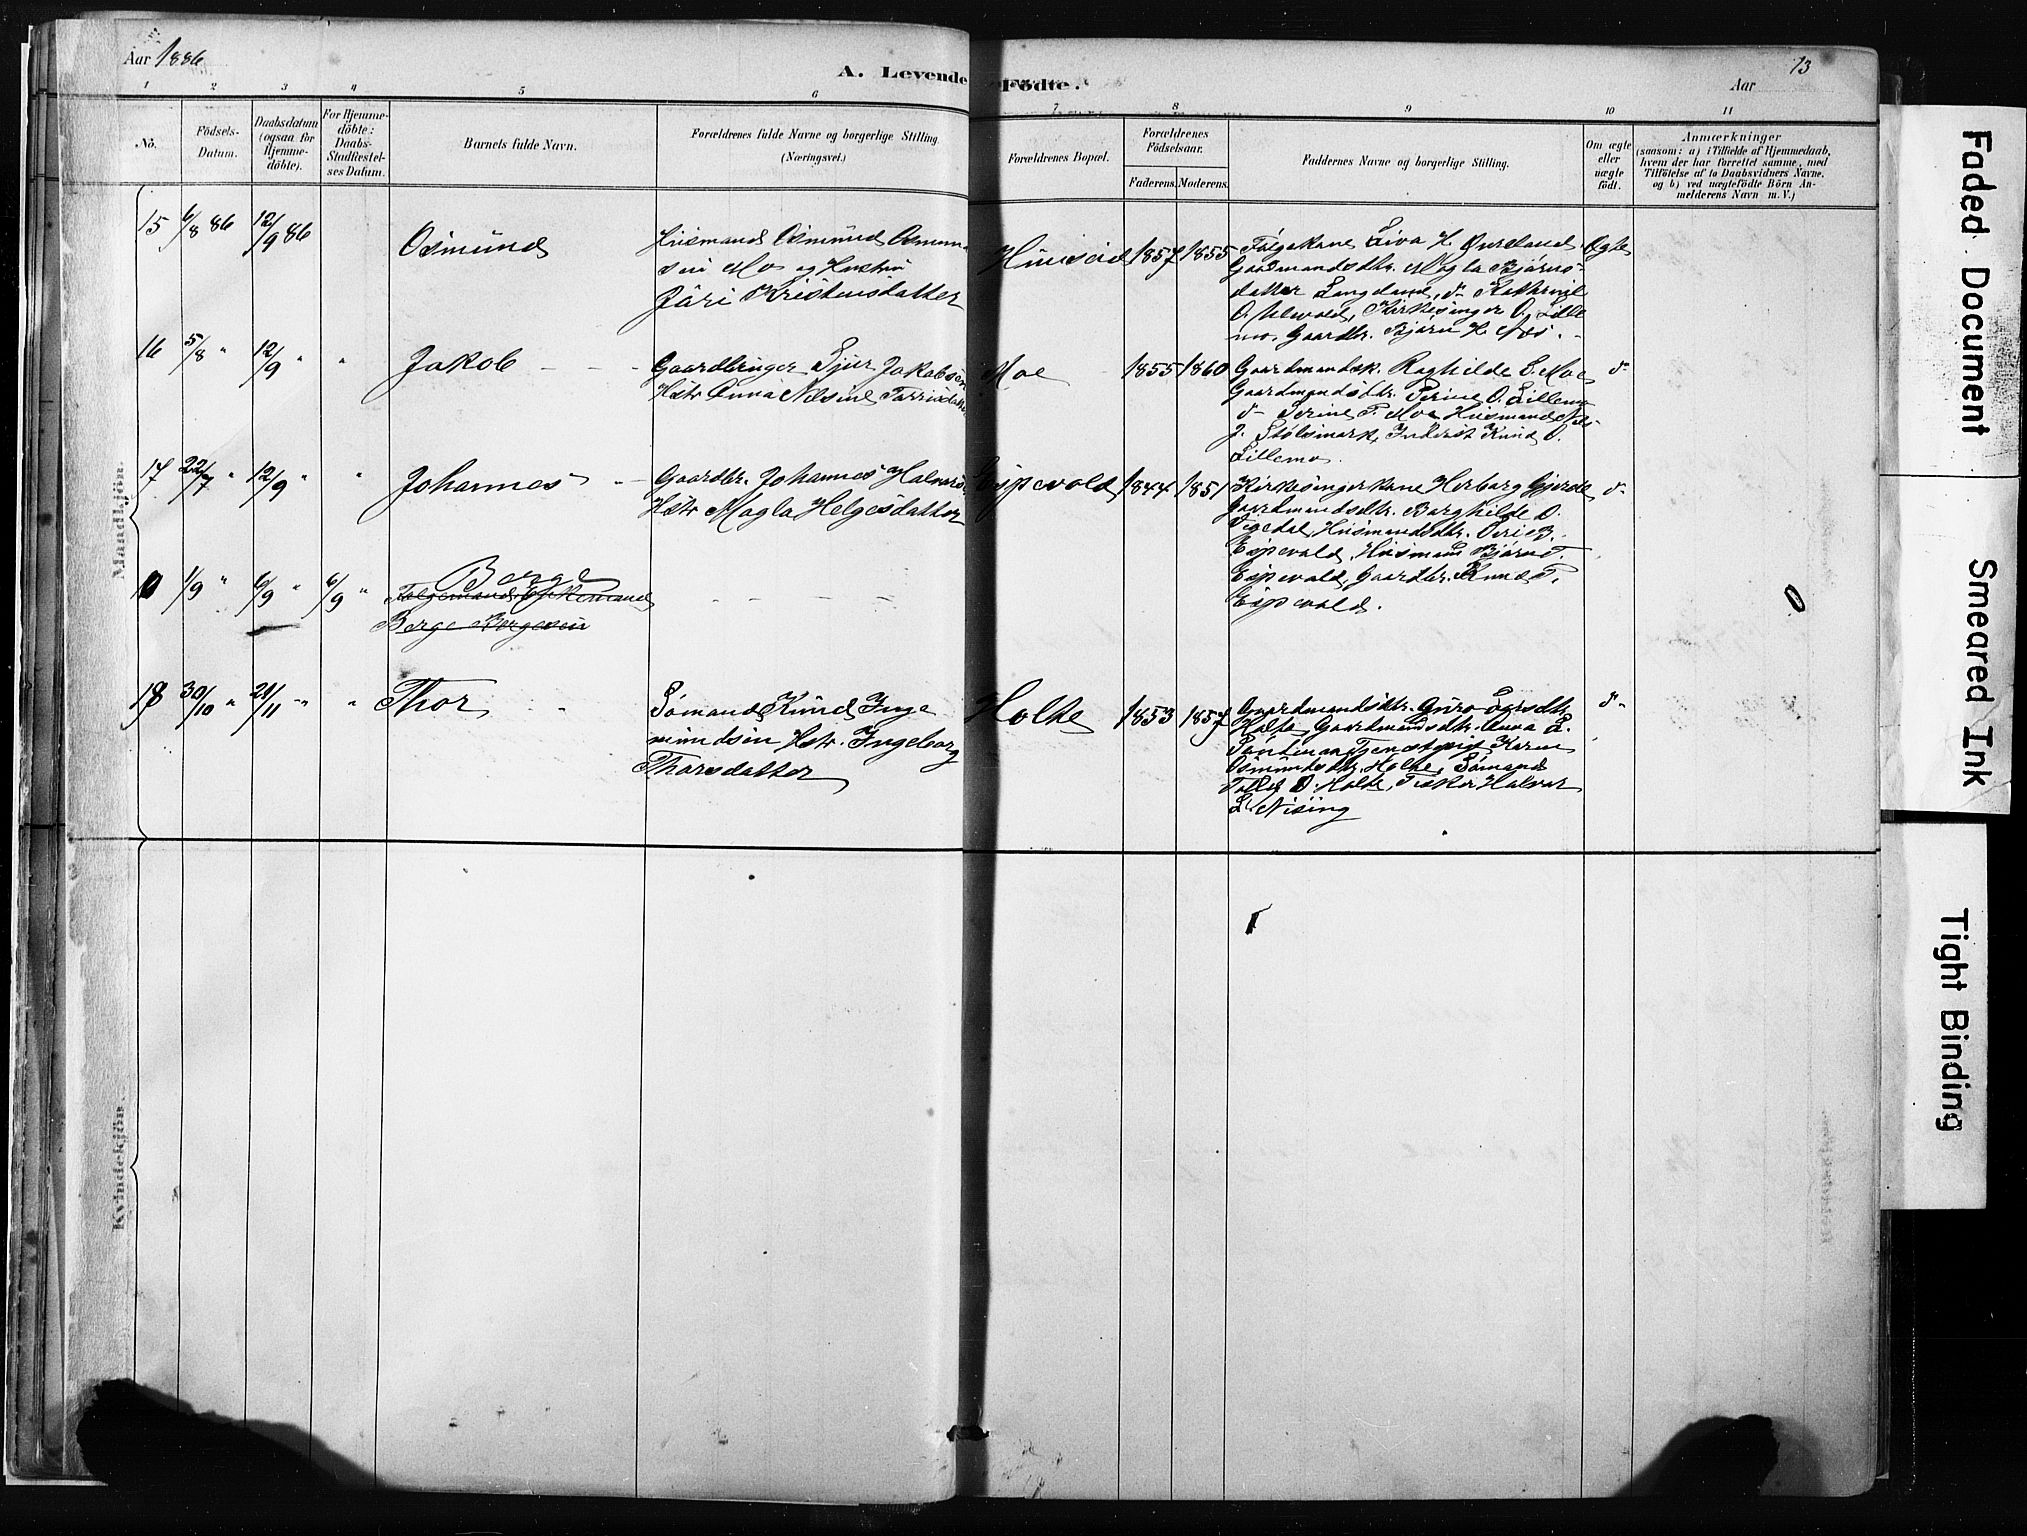 Aar 1886
A. Levende Födte.
13
Aar
1 2 3 4 5 6 7 8 9 10 11
No.
Födsels-
Datum.
Daabsdatum
(ogsaa for
Hjemme-
döbte).
For Hjemme-
döbte:
Daabs-
Stadfæstel-
ses Datum.
Barnets fulde Navn.
Forældrenes fulde Navne og borgerlige Stilling
(Næringsvei.)
Forældrenes Bopæl.
Forældrenes
Födselsaar.
Faderens. Moderens.
Faddernes Navne og borgerlige Stilling.
Om ægte
eller
uægte
födt.
Anmærkninger
(saasom: a) i Tilfælde af Hjemmedaab,
hvem der har forrettet samme, med
Tilföielse af to Daabsvidners Navne,
og b) ved uægtefödte Börn An-
melderens Navn m. V.)
Mandkjön.
15 6/8 86 12/9 86
Osmund
Husmand Osmund Osmun
sen Mo og Hustru
Järi Kristensdatter
1857 1855
Følgekone Siva H.
Gaardmandsdtr. Magla Bjørns-
datter Langeland, d-
Kirkesanger O. Lille
mo, Gaardbr. Bjørn H.
Ægte
16 5/8 " 12/9 " "
Jakob
Gaardbruger Sjur Jakobsen
Hstr Anna Nilsine
Moe
1855 1860
Gaardmandsk. Raghilde E. Moe
Gaardmandsdtr. Serine O. Lillemo
d- Serine T. Moe Husmand
J. Stølsmark, Knud O.
Lillemo
d-
17 22/7 " 12/9 " "
Johannes
Gaardbr. Johannes Halvars
Hstr Magla Helgesdatter
Espevold
1844 1851
Kirkesangerkone Herborg Gjerde
Gaardmandsdtr. Barghilde O.
Vigedal, Husmandsdtr. B.
Espevold, Husmand Bjørn T.
Espevold, Gaardbr. Knud T.
Espevold.
d-
0 1/9 " 6/9 " 6/9 "
Berge
Følgemand
Berge Bergesen
0
18 30/10 " 21/11 " "
Thor
Sømand Knud Inge
mundsen Hstr. Ingeborg
Thorsdatter
Holte
1853 1857
Gaardmandsdtr. Guro Larsdtr
Holte, Gaardmandsdtr. Anna A.
Tjenestepige Karen
Osmundsdtr. Holte, Sømand
O. Holte, Fisker Halvar
L. Nising
d-
Kvindekjön.
Faded Document
Smeared Ink
Tight Binding